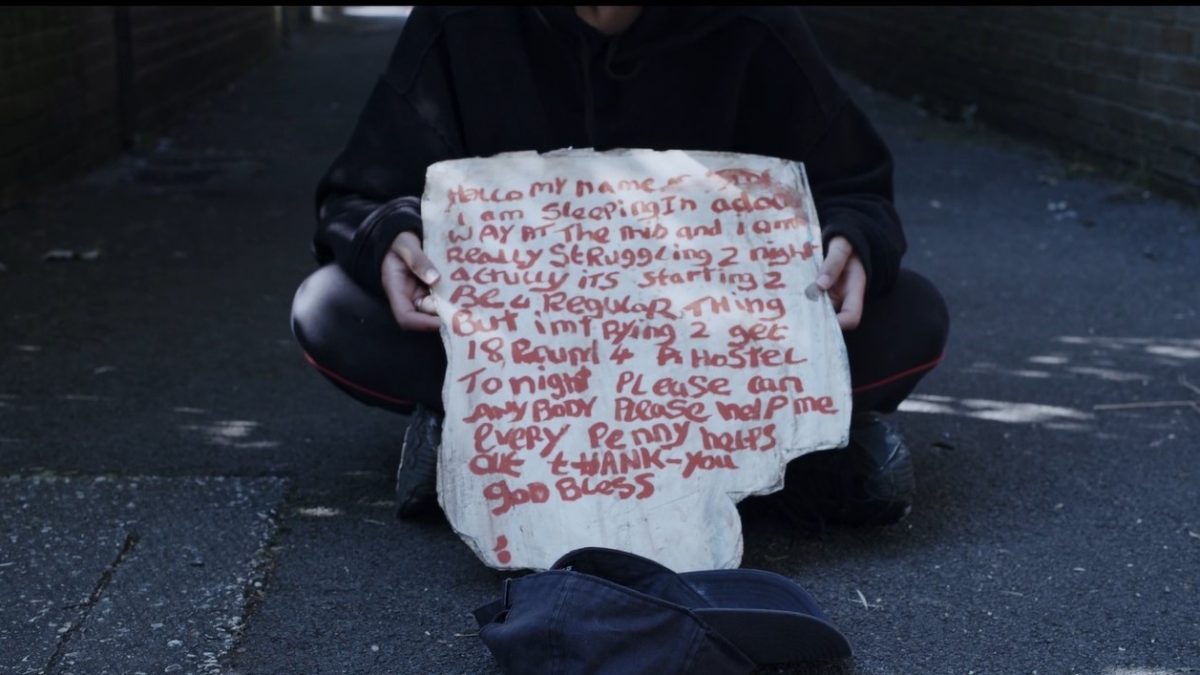 Hello my name is
I am sleepingIn adoor
WAY AT The mib and I am
Really StRuggling 2 night
actully iTs starting 2
Be a RegulaR THing
But i'm tRying 2 get
18 Pound 4 A HosTel
To night PLease can
ANYBODY Please help me
eveRy Penny helps
Out tHANK-you
goD Bless